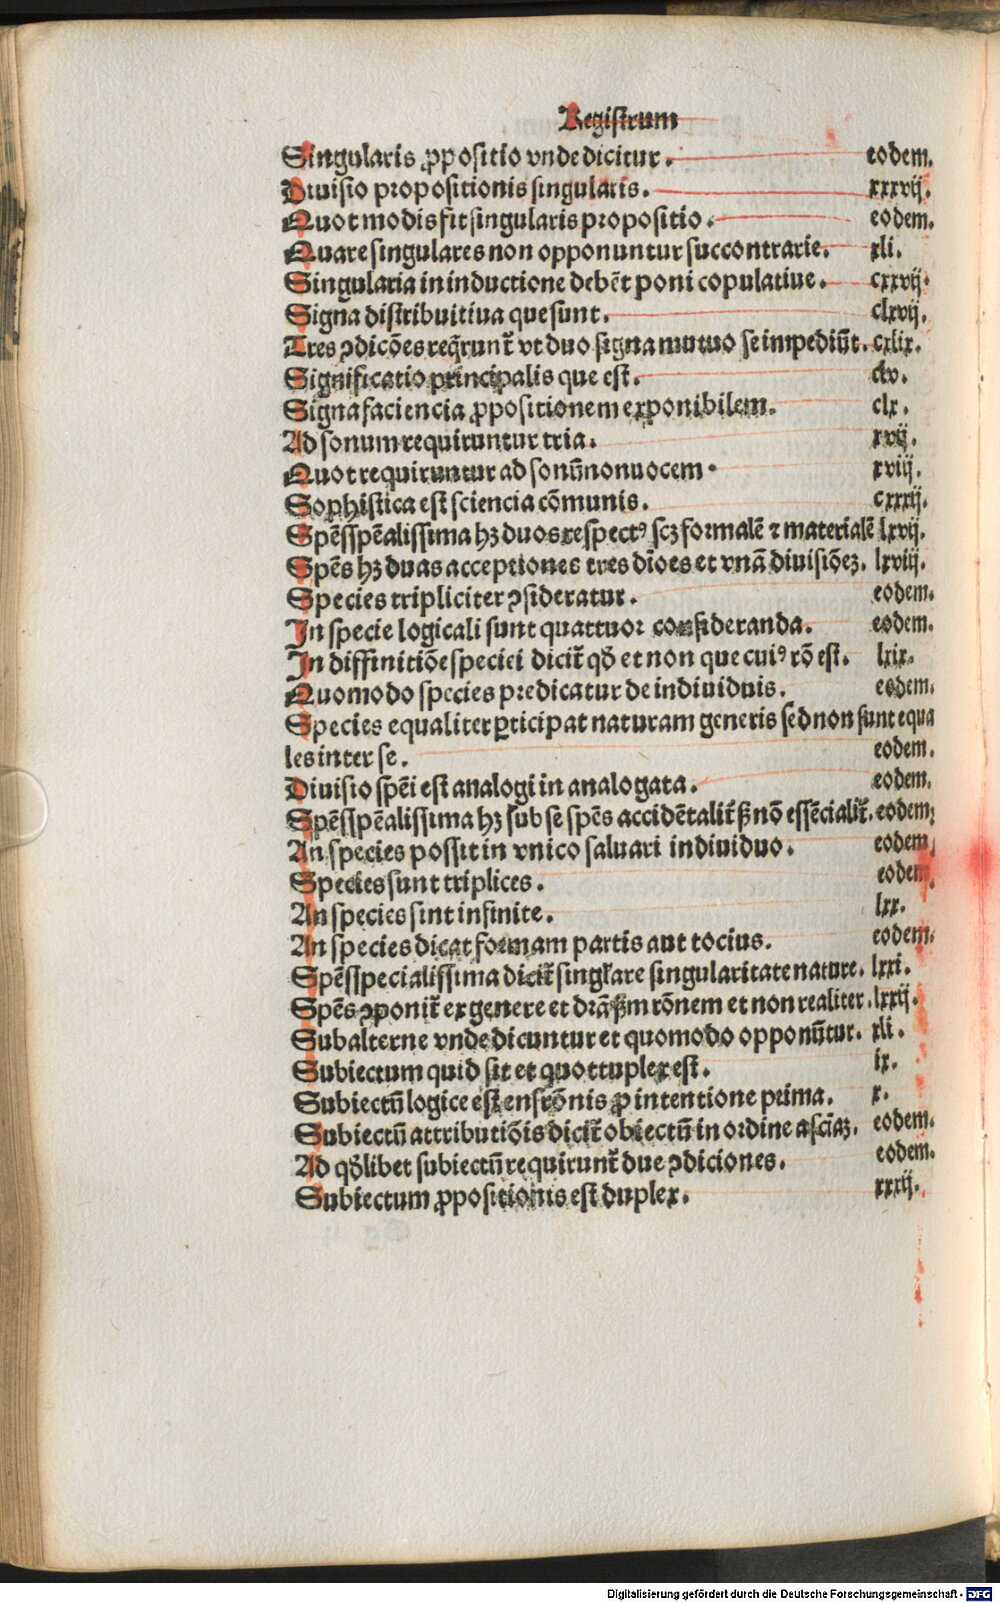 Registrum
Singularis ꝓpositio vnde dicitur. eodem.
Diuisio propositionis singularis. xxxvij.
Quot modis fit singularis propositio. eodem.
Quare singulares non opponuntur succontrarie. xli.
Singularia in inductione debēt poni copulatiue. cxxvij.
Signa distribuitiua que sunt. clxvij.
Tres ꝯdicōes reqͥrunt᷑ vt duo signa mutuo se impediūt. cxlix.
Significatio principalis que est. clv.
Signa faciencia ꝓpositionem exponibilem. clx.
Ad sonum requiruntur tria. xvij.
Quot requiruntur ad sonū nonuocem. xviij.
Sophistica est sciencia cōmunis. cxxxij.
Spēs spēalissima hꝫ duos respectꝰ scꝫ formalē ⁊ materialē lxvij.
Spēs hꝫ duas acceptiones tres dīoes et vnā diuisiōeꝫ. lxviij.
Species tripliciter ꝯsideratur. eodem.
In specie logicali sunt quattuor consideranda. eodem.
In diffinitiōe speciei dicit᷑ qd̄ et non que cuiꝰ rō est. lxix.
Quomodo species predicatur de indiuiduis. eodem.
Species equaliter ꝑticipat naturam generis sed non sunt equa
les inter se. eodem.
Diuisio spēi est analogi in analogata. eodem.
Spēs spēalissima hꝫ sub se spēs accidētalit᷑ sꝫ nō essēcialit᷑. eodem;
An species possit in vnico saluari indiuiduo. eodem
Species sunt triplices. eodem.
An species sint infinite. lxx.
An species dicat formam partis aut tocius. eodem.
Spēs specialissima dicit᷑ singl̄are singularitate nature. lxxi.
Spēs ꝯponit᷑ ex genere et dr̄ā ẜm rōnem et non realiter. lxxij.
Subalterne vnde dicuntur et quomodo opponūtur. xli.
Subiectum quid sit et quottuplex est. ix.
Subiectū logice est ens rōnis ꝓ intentione prima. x.
Subiectū attributiōis dicit᷑ obiectū in ordine a sciāꝫ. eodem.
Ad qd̄libet subiectū requirunt᷑ due ꝯdiciones. eodem.
Subiectum ꝓpositionis est duplex. xxxij.
Digitalisierung gefördert durch die Deutsche Forschungsgemeinschaft - DFG